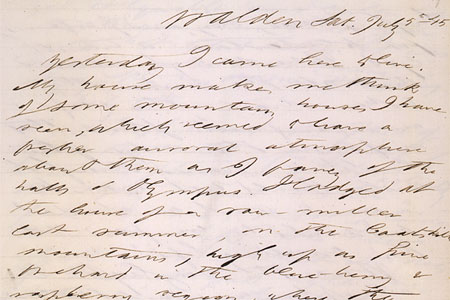 Walden Sat. July 5th 45
Yesterday I came here to live.
My house makes me think
of some mountain houses I have
seen, which seemed to have a
fresher auroral atmosphere
about them as I fancy of the
halls of Olympus. I lodged at
the house of a saw-miller
last summer in the Caatskill
mountains, high up as Pine
orchard in the blue-berry &
raspberry region, where the